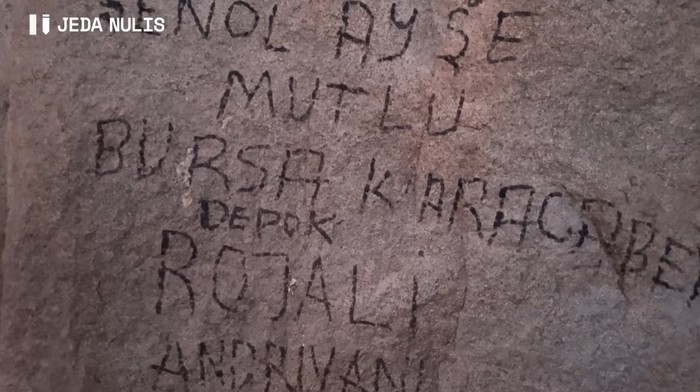 JEDA NULIS
ŞENOL AYŞE
MUTLU
BURSA KARACABE
DEPOK
ROJALi
ANDRIYANI